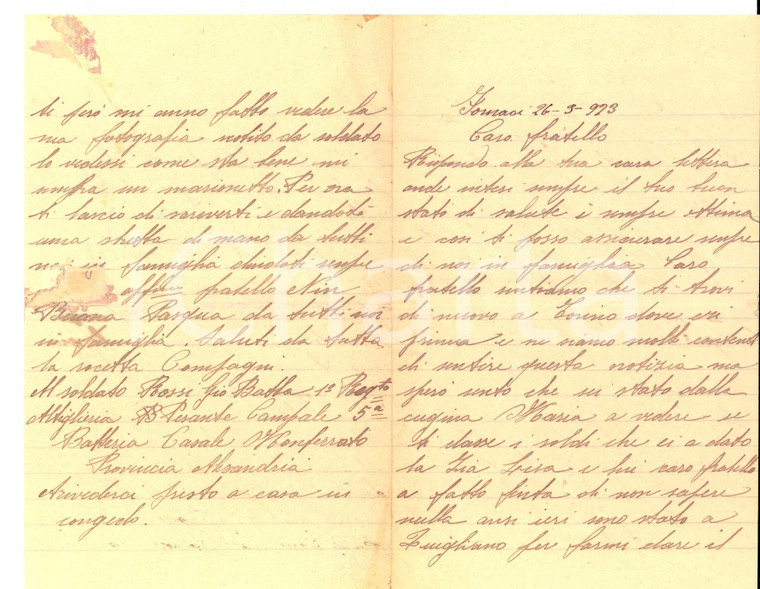 Fornaci 26-3-923
Caro fratello
Rispondo alla tua cara lettera
onde intesi sempre il tuo buon
stato di salute è sempre ottima
e così ti posso assicurare sempre
di noi in famiglia. Caro
fratello sentiamo che ti trovi
di nuovo a Torino dove eri
prima e ne siamo molti contenti
di sentire questa notizia ma
sperò unto che sei stato dalla
cugina Maria a vedere se
ti dasse i soldi che ci a dato
la Zia Lisa e lui caro fratello
a fatto finta di non sapere
nulla ansi ieri sono stato a
per farmi dare il
ti però mi anno fatto vedere la
ma fotografia vestito da soldato
lo vedessi come sta bene mi
sempra un marionetto. Per ora
ti lascio di scriverti e dandoti
una stretta di mano da tutti
noi in famiglia chiedoti sempre
fratello
Buona Pasqua da tutti noi
in famiglia. Saluti da tutta
la Compagni
Al soldato Rossi Gio Batta 1º Regto
Altiglieria Pesante Campale 5ª
Batteria Casale Monferrato
Provincia Alesandria
Arivederci presto a casa in
congedo.
charta